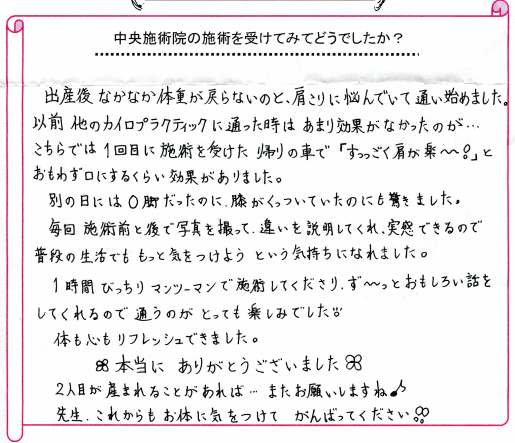 中央施術院の施術を受けてみてどうでしたか？
出産後なかなか体重が戻らないのと、肩こりに悩んでいて通い始めました。
以前他のカイロプラクティックに通った時はあまり効果がなかったのが…
こちらでは1回目に施術を受けた帰りの車で「すっごく肩が楽〜!」と
おもわず口にするくらい効果がありました。
別の日にはO脚だったのに、膝がくっついていたのにも驚きました。
毎回施術前と後で写真を撮って、違いを説明してくれ、実感できるので
普段の生活でももっと気をつけようという気持ちになれました。
1時間びっちりマンツーマンで施術してくださり、ず〜っとおもしろい話を
してくれるので通うのがとっても楽しみでした
体も心もリフレッシュできました。
本当にありがとうございました
2人目が産まれることがあれば…またお願いしますね♪
先生、これからもお体に気をつけてがんばってください!!